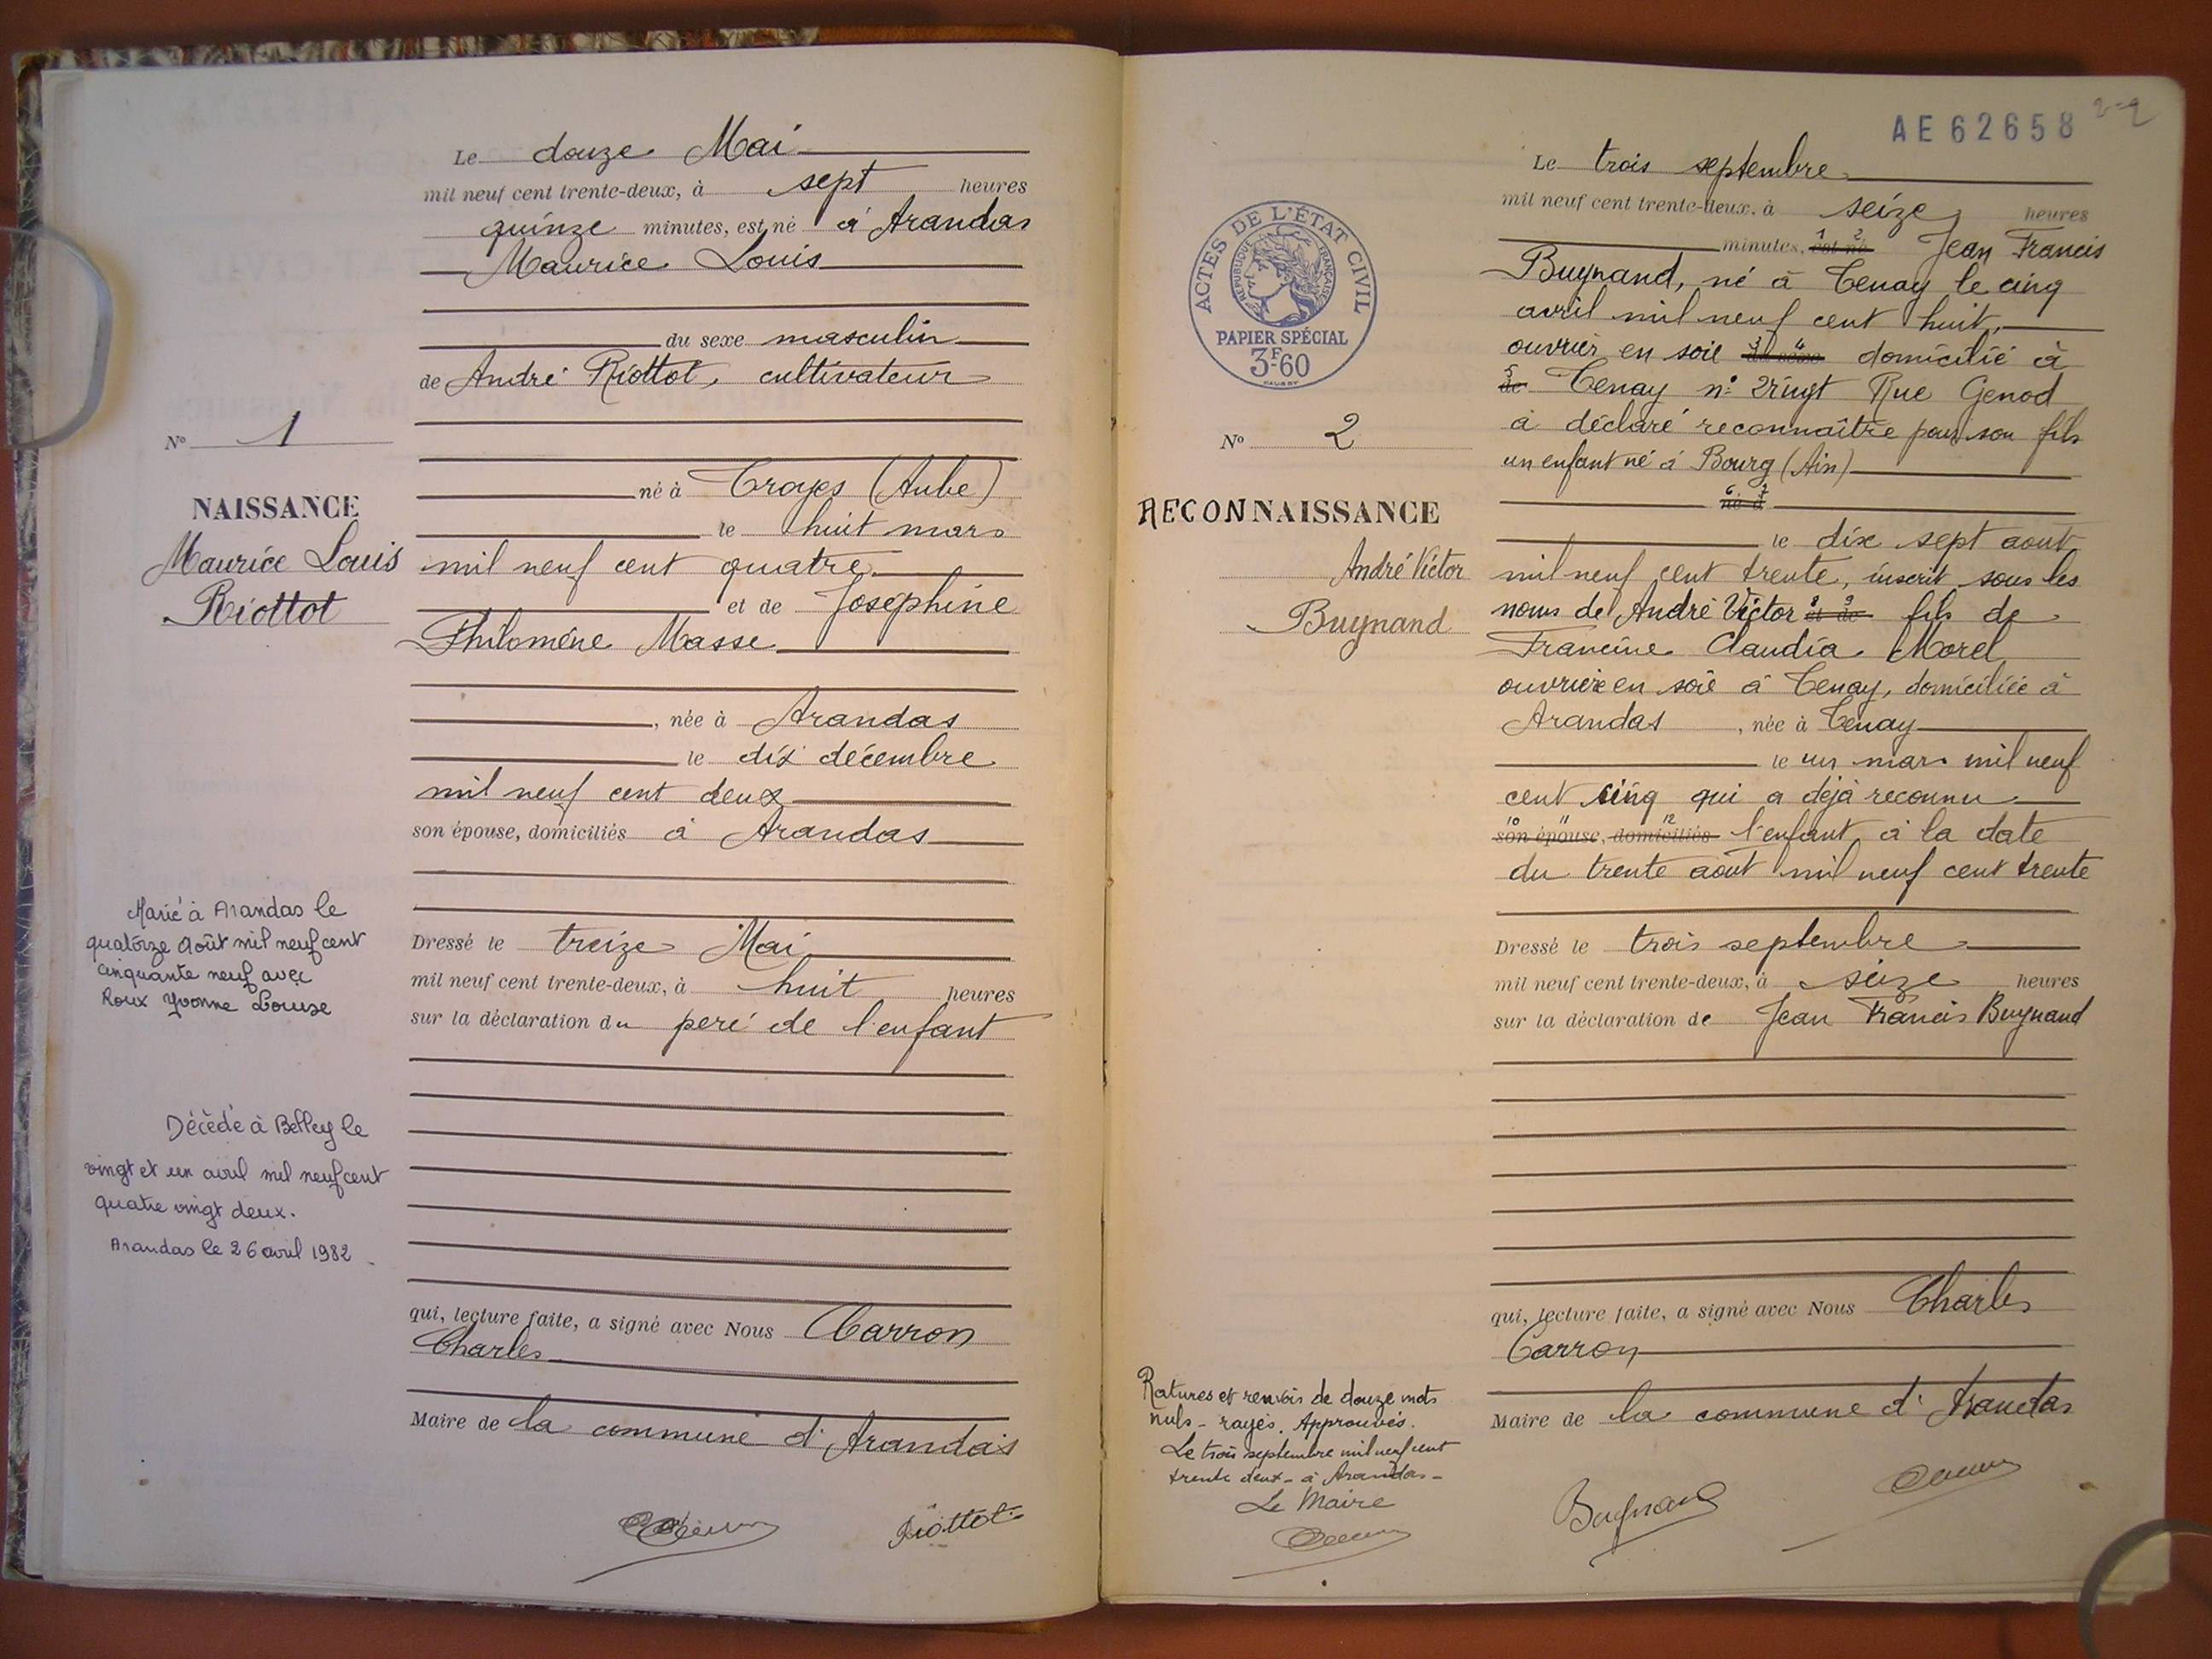 Le douze Mai
mil neuf cent trente-deux, à sept heures
quinze minutes, est né à Arandas
Maurice Louis
du sexe masculin
de André Riottot, cultivateur
né à Troyes (Aube)
le huit mars
mil neuf cent quatre
et de Joséphine
Philomène Masse
, née à Arandas
le dix décembre
mil neuf cent deux
son épouse, domiciliés à Arandas
Dressé le treize Mai
mil neuf cent trente-deux, à huit heures
sur la déclaration du père de l'enfant
qui, lecture faite, a signé avec Nous Carron
Charles
Maire de la commune d'Arandas
Riottot
No 1
NAISSANCE
Maurice Louis
Riottot
Marié à Arandas le
quatorze Août mil neuf cent
cinquante neuf avec
Roux Yvonne Louise
Décédé à Belley le
vingt et un avril mil neuf cent
quatre vingt deux.
Arandas le 26 avril 1982
AE 62658
2-2
ACTES DE L'ÉTAT CIVIL
RÉPUBLIQUE FRANÇAISE
PAPIER SPÉCIAL
3F60
No 2
RECONNAISSANCE
André Victor
Buynand
Le trois septembre
mil neuf cent trente-deux, à seize heures
minutes, 1 est 2 né Jean Francis
Buynand, né à Tenay le cinq
avril mil neuf cent huit,
ouvrier en soie 3 du 4 sexe domicilié à
5 de Tenay n° vingt Rue Genod
a déclaré reconnaître pour son fils
un enfant né à Bourg (Ain)
6 né 7 à
le dix sept aout
mil neuf cent trente, inscrit sous les
noms de André Victor 8 et 9 de fils de
Francine Claudia Morel
ouvrière en soie à Tenay, domiciliée à
Arandas , née à Tenay
le un mars mil neuf
cent cinq qui a déjà reconnu
10 son 11 épouse, 12 domiciliés l'enfant à la date
du trente août mil neuf cent trente
Dressé le trois septembre
mil neuf cent trente-deux, à seize heures
sur la déclaration de Jean Francis Buynand
qui, lecture faite, a signé avec Nous Charles
Carron
Maire de la commune d'Arandas
Buynand
Ratures et renvois de douze mots
nuls - rayés. Approuvés.
Le trois septembre mil neuf cent
trente deux - à Arandas -
Le Maire